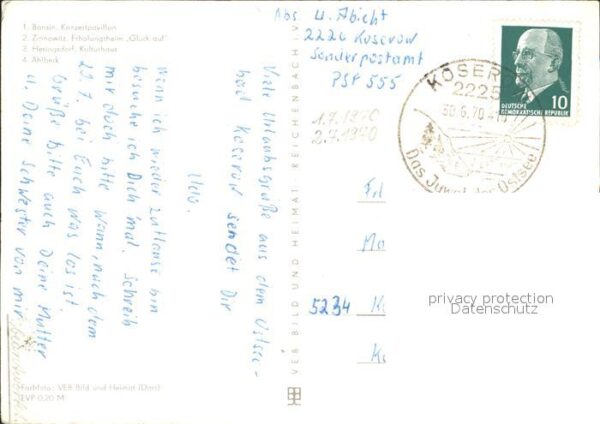 1. Bansin, Konzertpavillon
2. Zinnowitz, Erholungsheim „Glück auf"
3. Heringsdorf, Kulturhaus
4. Ahlbeck
Viele Urlaubsgrüße aus dem Ostsee-
bad Koserow sendet Dir
Wenn ich wieder zuhause bin
besuche ich Dich mal. Schreib
mir doch bitte wann, nach dem
20.7. bei Euch was los ist
Grüße bitte auch Deine Mutter
u. Deine Schwester von mir
Farbfoto: VEB Bild und Heimat (Dars)
EVP 0,20 M
VEB BILD UND HEIMAT REICHENBACH
Abs U. Abicht
2226 Koserow
Sonderpostamt
PSF 555
1.7.1970
2.7.1970
KOSEROW
2225
30.6.70
Das Juwel der Ostsee!
DEUTSCHE
DEMOKRATISCHE REPUBLIK
10
Frl
Ma
5234 K
privacy protection
Datenschutz